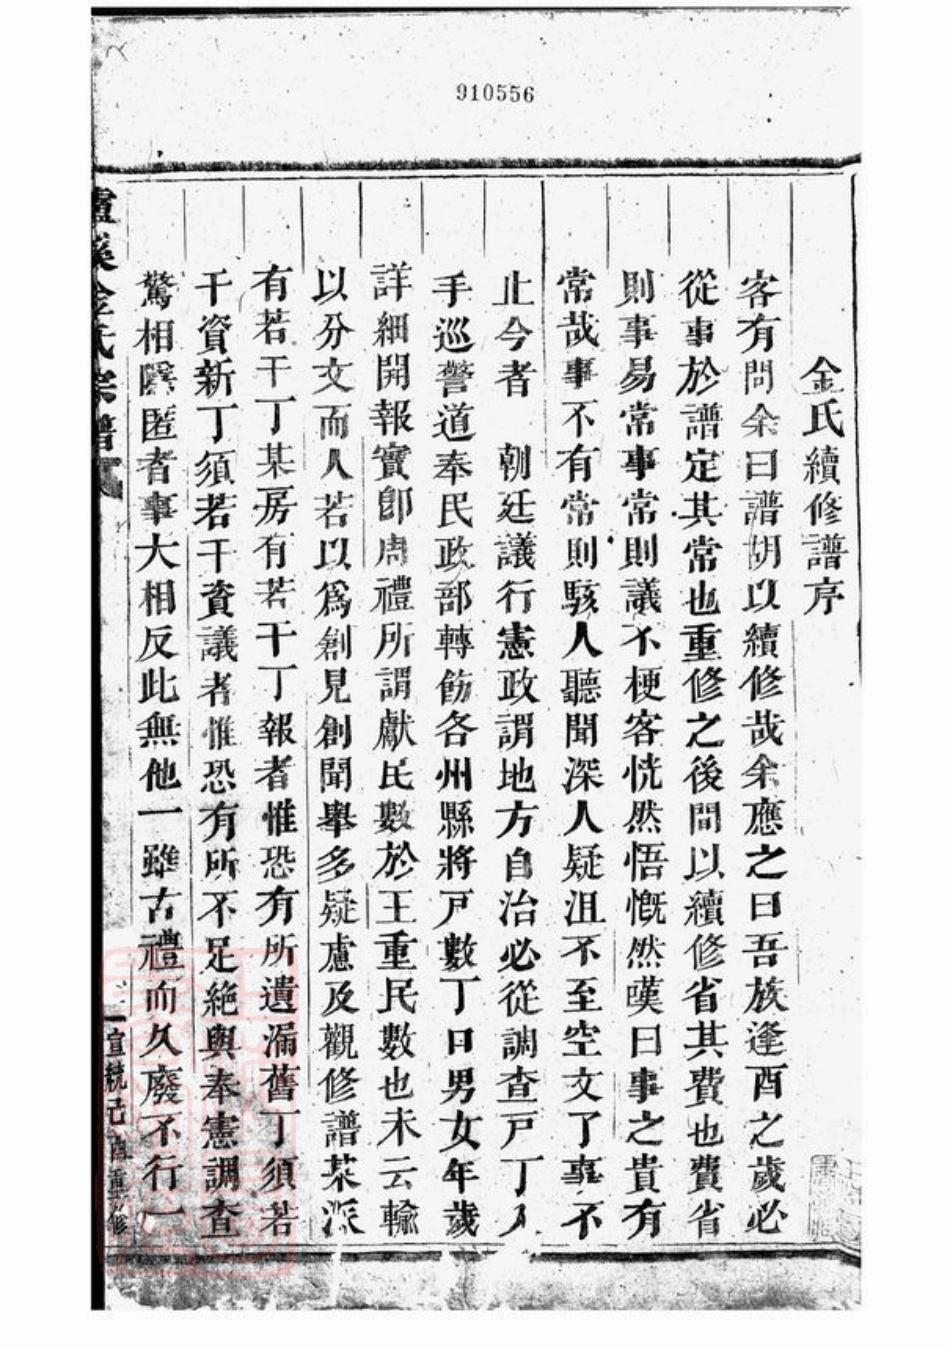 910556
金氏續修譜序
客有問余曰譜胡以續修哉余應之曰吾族逢酉之歲必
從事於譜定其常也重修之後間以續修省其費也費省
則事易常事常則議不梗客恍然悟慨然嘆曰事之貴有
常哉事不有常則駭人聽聞深人疑沮不至空文了事不
止今者 朝廷議行憲政謂地方自治必從調查戸丁入
手巡警道奉民政部轉飭各州縣將戸數丁口男女年歲
詳細開報實卽周禮所謂獻民數於王重民數也未云輸
以分文而人若以爲創見創聞舉多疑慮及觀修譜某派
有若干丁某房有若干丁報者惟恐有所遺漏舊丁須若
干資新丁須若干資議者惟恐有所不足絶與奉憲調查
驚相隱匿者事大相反此無他一雖古禮而久廢不行一
金氏宗譜
宣統己酉重修